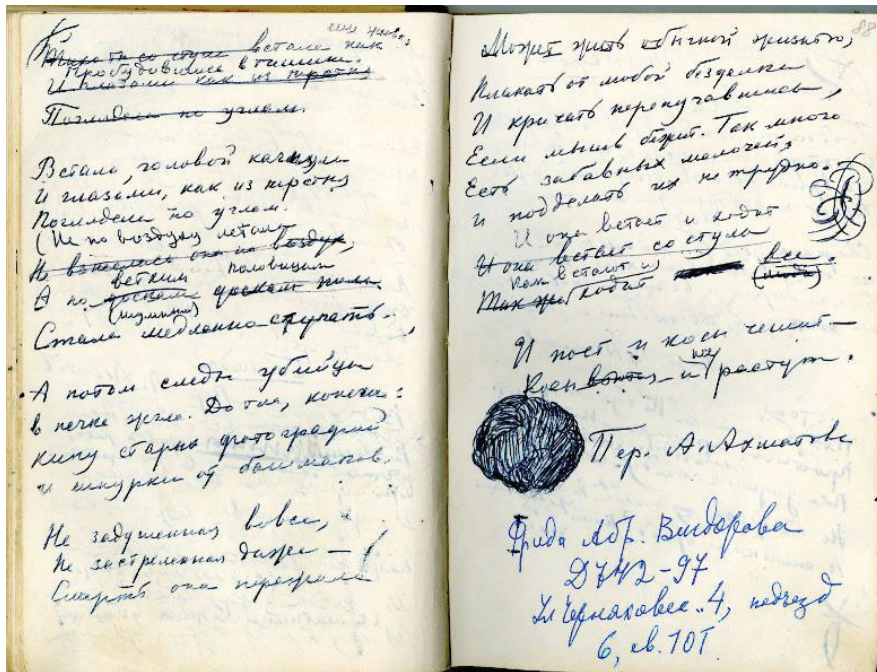 еще жива
88
встала как
Пробудившись в тишине.
И глазами как из перстня
Поглядела по углам.
Встала, головой качнула
И глазами, как из перстня
Поглядела по углам.
(Не по воздуху летает
она по воздуху,
ветхим половицам
А по доскам доскам пола
Стала медленно стучать.
А потом следы убийцы
в печке жгла. До тла, конечно:
кипу старых фотографий
и шнурки от башмаков.
Не задушенная вовсе,
Не застреленная даже —
Смерть она перенесла
Может жить обычной жизнью,
Плакать от любой безделки
И кричать перепугавшись,
Если мышь бежит. Так много
Есть забавных мелочей,
и подделать их не трудно.
И она встает и ходит
И она встает со стула
Как встают и все.
Так же ходит
И поет и косы чешет —
Косы и растут.
Пер. А. Ахматовой
Фрида Абр. Вигдорова
Д742-97
Ул Черняховск. 4, подъезд
6, кв. 101.